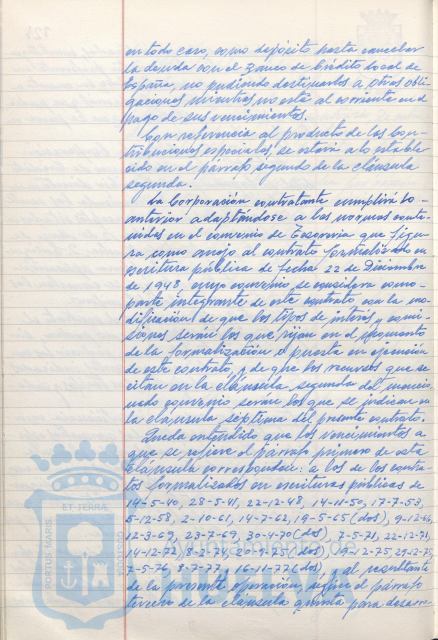 en todo caso, como depósito hasta cancelar
la deuda con el Banco de Crédito Local de
España, no pudiendo destinarlos a otras obli-
gaciones mientras no esté al corriente en el
pago de sus vencimientos.
Con referencia al producto de las Con-
tribuciones especiales se estará a lo estable-
cido en el párrafo segundo de la cláusula
segunda.
La Corporación contratante cumplirá lo
anterior adaptándose a las normas conte-
nidas en el convenio de Tesorería que figu-
ra como anejo al contrato formalizado en
escritura pública de fecha 22 de Diciembre
de 1948, cuyo convenio se considera como
parte integrante de este contrato con la mo-
dificación de que los tipos de interés y comi-
siones serán los que rijan en el momento
de la formalización o puesta en ejecución
de este contrato, y de que los recursos que se
citan en la cláusula segunda del mencio-
nado convenio serán los que se indican en
la cláusula séptima del presente contrato.
Queda entendido que los vencimientos a
que se refiere el párrafo primero de esta
cláusula corresponden: a los de los contra-
tos formalizados en escrituras públicas de
14-5-40, 28-5-41, 22-12-48, 14-11-50, 17-7-53,
5-12-58, 2-10-61, 14-7-62, 19-5-65 (dos), 9-12-66,
12-3-69, 23-7-69, 30-4-70 (dos), 7-5-71, 22-12-71,
14-12-72, 8-2-74, 20-9-75 (dos), 19-12-75, 29-12-75,
7-5-76, 8-7-77, 16-11-77 (dos), y al resultante
de la presente operación, según el párrafo
tercero de la cláusula quinta para desarro-
ET TERRA
PORTUS MARIS
CUSTODIT